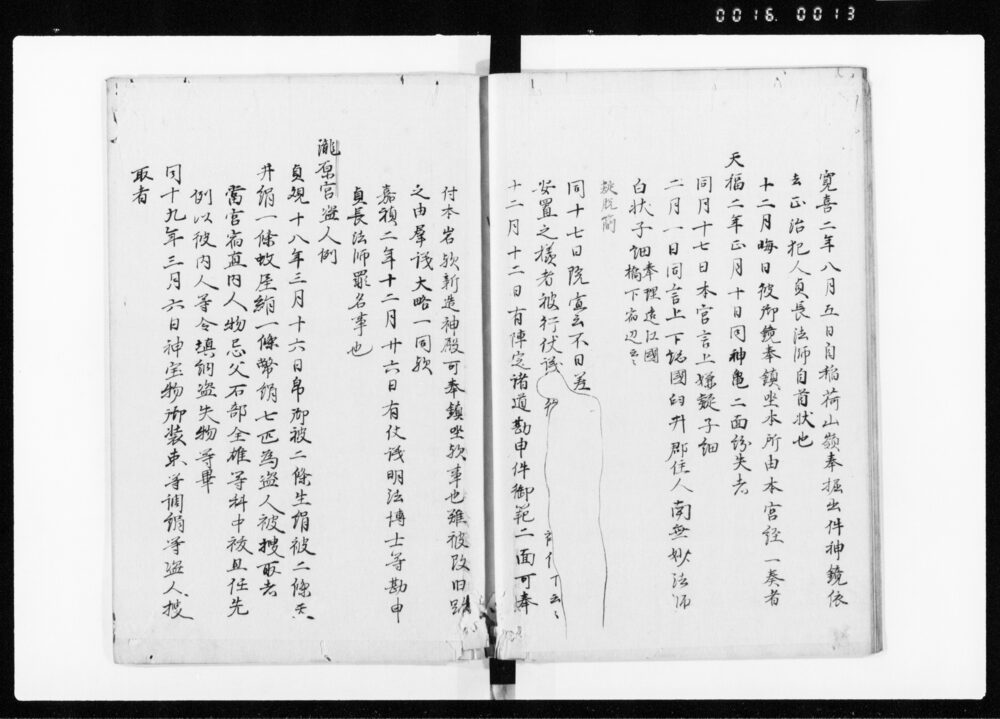 0016 0013
寛喜二年八月五日自稲荷山嶺奉掘出件神鏡依
去正治犯人貞長法師自首状也
十二月晦日彼御鏡奉鎮坐本所由本宮経一奏者
天福二年正月十日同神亀二面紛失者
同月十七日本宮言上嫌疑子細
二月一日同言上下総国臼井郡住人南無妙法師
白状子細奉埋遠江国橋下宿辺云々
疑脱簡
同十七日院宣云不日差
安置之様者被行仗議
十二月十二日有陣定諸道勘申件御範二面可奉
付本岩欤新造神殿可奉鎮坐欤事也雖被改旧
之由群議大略一同欤
嘉禎二年十二月廿六日有仗議明法博士等勘申
貞長法師罪名事也
瀧原宮盗人例
貞観十八年三月十六日帛御被二条生絹被二条
井絹一条蚊屋絹一條幣絹七匹為盗人被捜取者
当宮宿直内人物忌父石部全雄等科中祓且任先
例以彼内人等令填納盗失物等畢
同十九年三月六日神宝物御装束等調絹等盗人捜
取者